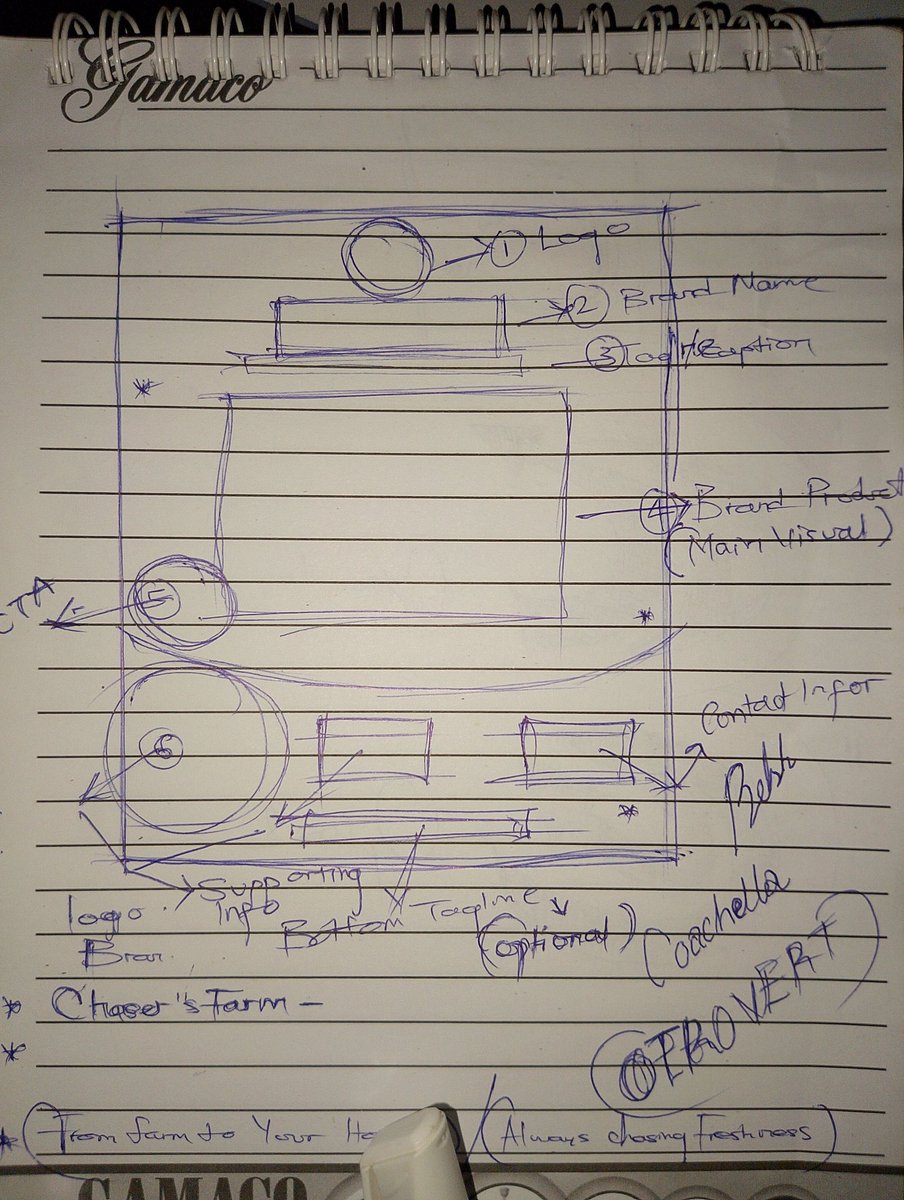 Gamaco
1 Logo
2 Brand Name
3 Caption
4 Brand Product
(Main Visual)
5
CTA
6
Contact Infor
Supporting
Info
logo
Bottom Tagline
(optional)
Coachella
OTROVERT
* Chaser's Farm -
*
* (From farm to Your / (Always chasing Freshness)
GAMACO